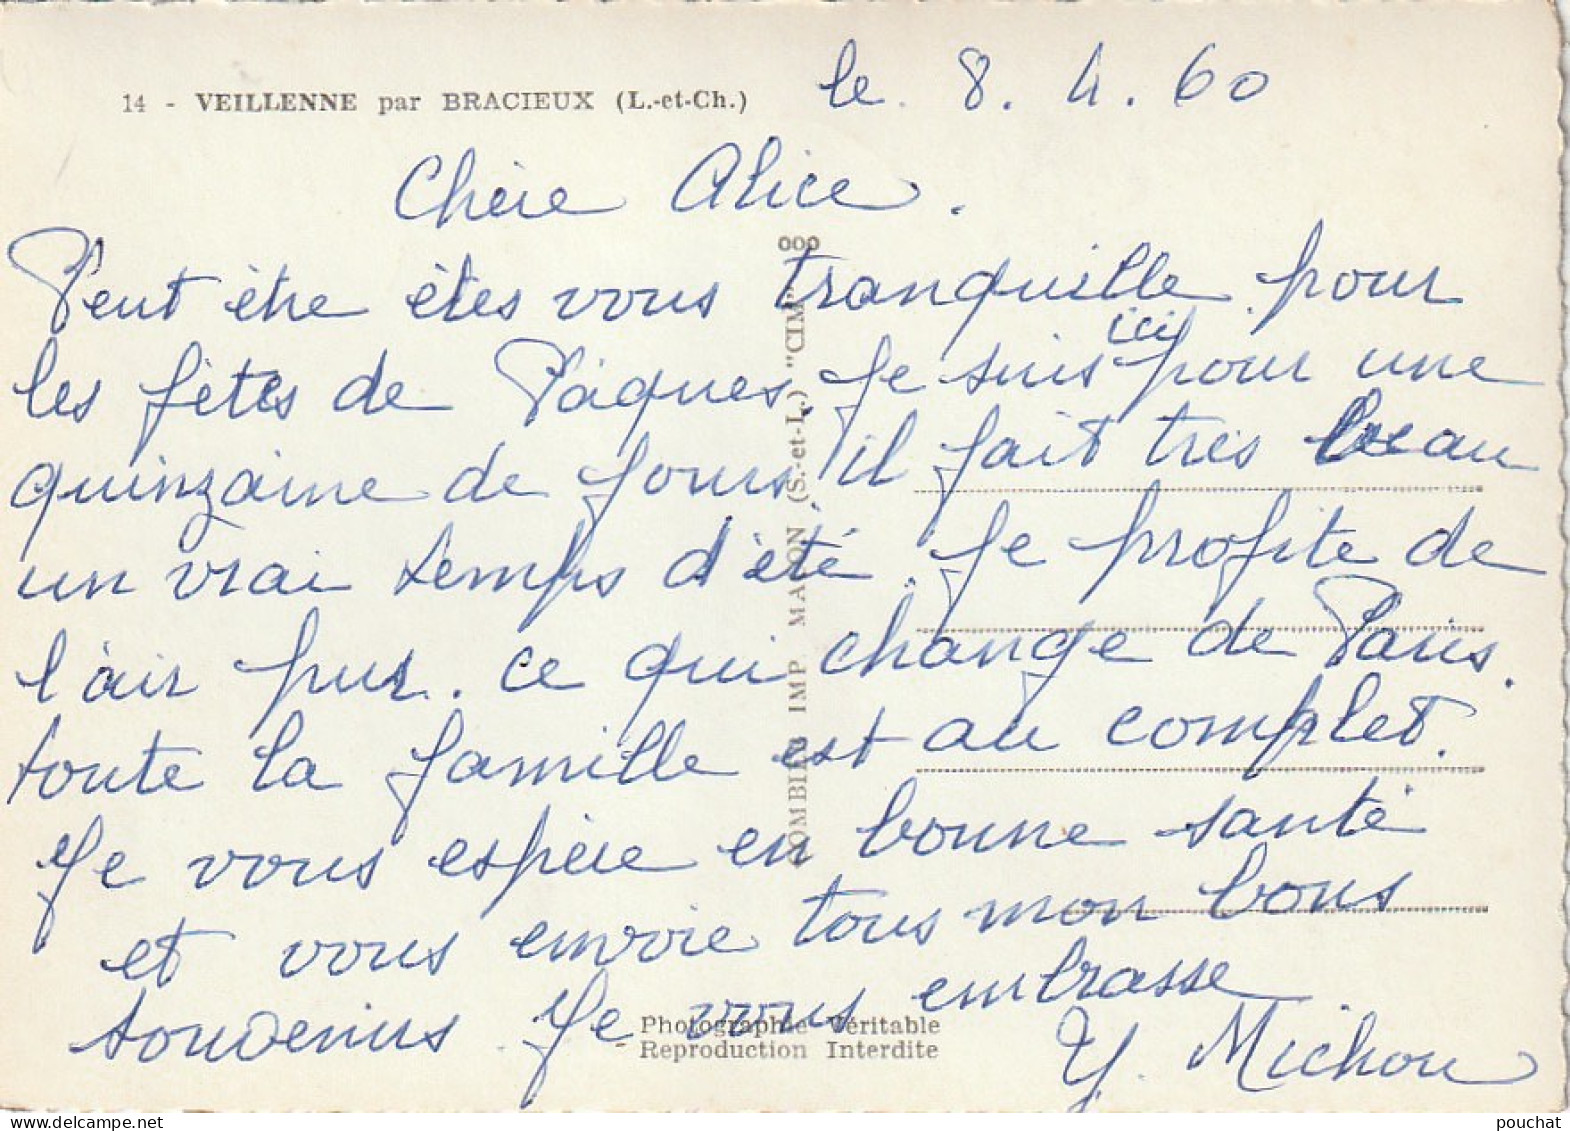 14 - VEILLENNE par BRACIEUX (L.-et-Ch.)
le 8. 4. 60
Chère Alice.
Peut être êtes vous tranquille pour
les fêtes de Pâques. Je suis ici pour une
quinzaine de jours, il fait très beau
un vrai temps d'été. Je profite de
l'air pur. ce qui change de Paris.
toute la famille est au complet.
Je vous espère en bonne santé
et vous envoie tous mon bons
souvenirs Je vous embrasse.
Y. Michou
COMBIER IMP. MACON (S.-et-L.) "CIM"
Photographie Véritable
Reproduction Interdite
pouchat